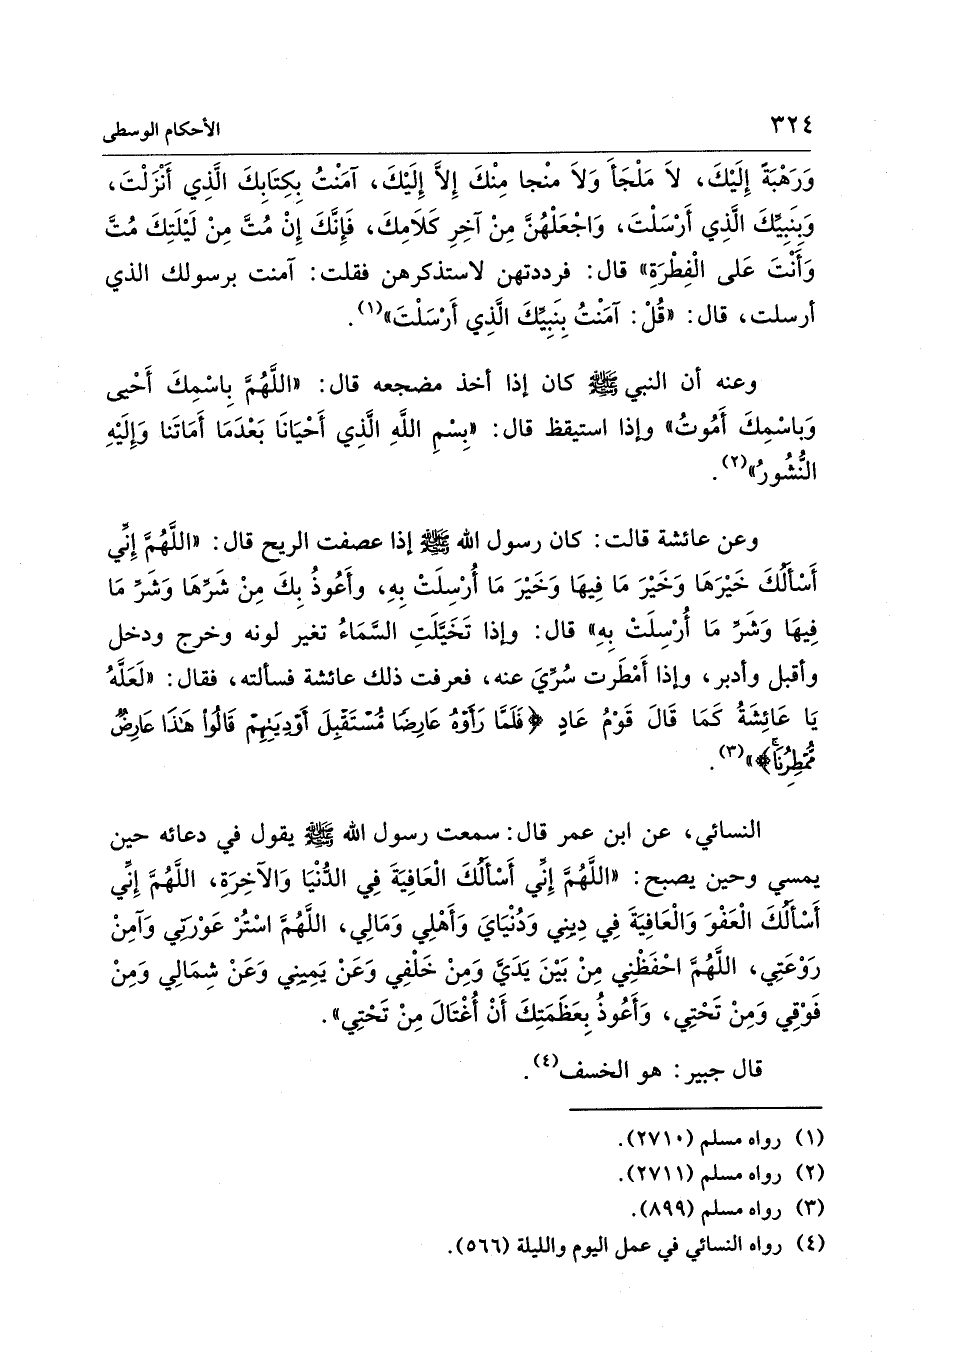 ٣٢٤
الأحكام الوسطى
وَرَهْبَةً إِلَيْكَ، لاَ مَلْجَأَ وَلاَ منْجا مِنْكَ إِلاَّ إِلَيْكَ، آمَنْتُ بِكِتَابِكَ الَّذِي أَنْزَلْتَ،
وَبِنَبِيِّكَ الَّذِي أَرْسَلْتَ، وَاجْعَلْهُنَّ مِنْ آخِرِ كَلَامِكَ، فَإِنَّكَ إِنْ مُتَّ مِنْ لَيْلَتِكَ مُتَّ
وَأَنْتَ عَلى الْفِطْرَةِ» قال: فرددتهن لاستذكرهن فقلت: آمنت برسولك الذي
أرسلت، قال: «قُلْ: آمَنْتُ بِنَبِيِّكَ الَّذِي أَرْسَلْتَ»(١).
وعنه أن النبي ﷺ كان إذا أخذ مضجعه قال: «اللَّهُمَّ بِاسْمِكَ أَحْيى
وَبَاسْمِكَ أَمُوتُ» وإذا استيقظ قال: «بِسْمِ اللَّهِ الَّذِي أَحْيَانَا بَعْدَمَا أَمَاتَنا وَإِلَيْهِ
النُّشُورُ»(٢).
وعن عائشة قالت: كان رسول الله ﷺ إذا عصفت الريح قال: «اللَّهُمَّ إِنِّي
أَسْأَلُكَ خَيْرَهَا وَخَيْرَ مَا فِيهَا وَخَيْرَ مَا أُرْسِلَتْ بِهِ، وأَعُوذُ بِكَ مِنْ شَرِّهَا وَشَرِّ مَا
فِيهَا وَشَرِّ مَا أُرْسِلَتْ بِهِ» قال: وإذا تَخَيَّلَتِ السَّمَاءُ تغير لونه وخرج ودخل
وأقبل وأدبر، وإذا أَمْطَرت سُرِّيَ عنه، فعرفت ذلك عائشة فسألته، فقال: «لَعَلَّهُ
يَا عَائِشَةُ كَمَا قَالَ قَوْمُ عَادٍ ﴿فَلَمَّا رَأَوْهُ عَارِضًا مُّسْتَقْبِلَ أَوْدِيَتِهِمْ قَالُواْ هَٰذَا عَارِضٌ
مُّمْطِرُنَا﴾»(٣).
النسائي، عن ابن عمر قال: سمعت رسول الله ﷺ يقول في دعائه حين
يمسي وحين يصبح: «اللَّهُمَّ إِنِّي أَسْأَلُكَ الْعَافِيَةَ فِي الدُّنْيَا وَالآخِرَةِ، اللَّهُمَّ إِنِّي
أَسْأَلُكَ الْعَفْوَ وَالْعَافِيَةَ فِي دِينِي وَدُنْيَايَ وَأَهْلِي وَمَالِي، اللَّهُمَّ اسْتُرْ عَوْرَتِي وَآمِنْ
رَوْعَتِي، اللَّهُمَّ احْفَظْنِي مِنْ بَيْنَ يَدَيَّ وَمِنْ خَلْفِي وَعَنْ يَمِينِي وَعَنْ شِمَالِي وَمِنْ
فَوْقِي وَمِنْ تَحْتِي، وَأَعُوذُ بِعَظَمَتِكَ أَنْ أُغْتَالَ مِنْ تَحْتِي».
قال جبير: هو الخسف(٤).
(١) رواه مسلم (٢٧١٠).
(٢) رواه مسلم (٢٧١١).
(٣) رواه مسلم (٨٩٩).
(٤) رواه النسائي في عمل اليوم والليلة (٥٦٦).